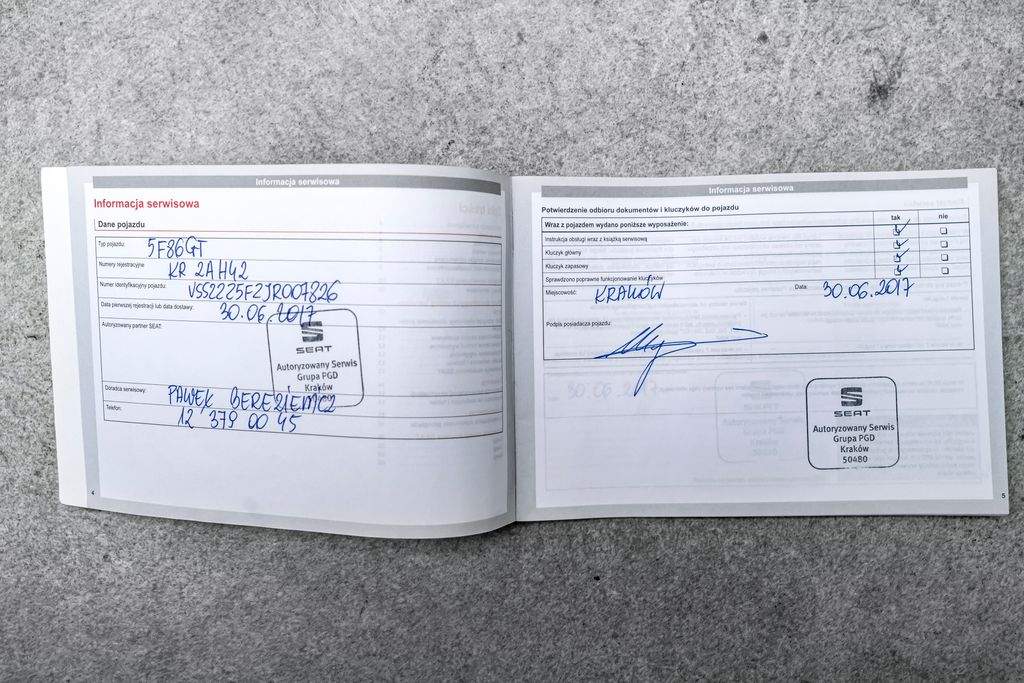 Informacja serwisowa
Informacja serwisowa
Dane pojazdu
Typ pojazdu: 5F86GT
Numery rejestracyjne KR 2AH42
Numer identyfikacyjny pojazdu: VSSZZZ5FZJR007826
Data pierwszej rejestracji lub data dostawy: 30.06.2017
Autoryzowany partner SEAT:
SEAT
Autoryzowany Serwis
Grupa PGD
Kraków
50480
Doradca serwisowy: PAWEŁ
Telefon: 12 379 00 45
4
Informacja serwisowa
Potwierdzenie odbioru dokumentów i kluczyków do pojazdu
Wraz z pojazdem wydano poniższe wyposażenie: tak nie
Instrukcja obsługi wraz z książką serwisową
Kluczyk główny
Kluczyk zapasowy
Sprawdzono poprawne funkcjonowanie kluczyków
Miejscowość: KRAKÓW Data: 30.06.2017
Podpis posiadacza pojazdu:
SEAT
Autoryzowany Serwis
Grupa PGD
Kraków
50480
5